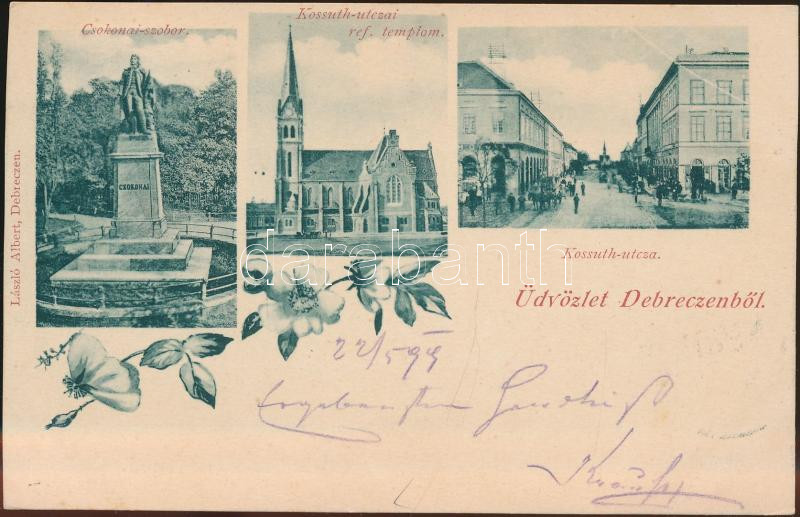 Csokonai-szobor.
Kossuth-utczai
ref. templom.
CSOKONAI
László Albert, Debreczen.
darabanth
Kossuth-utcza.
Üdvözlet Debreczenből.
22/5 99
Ergebensten